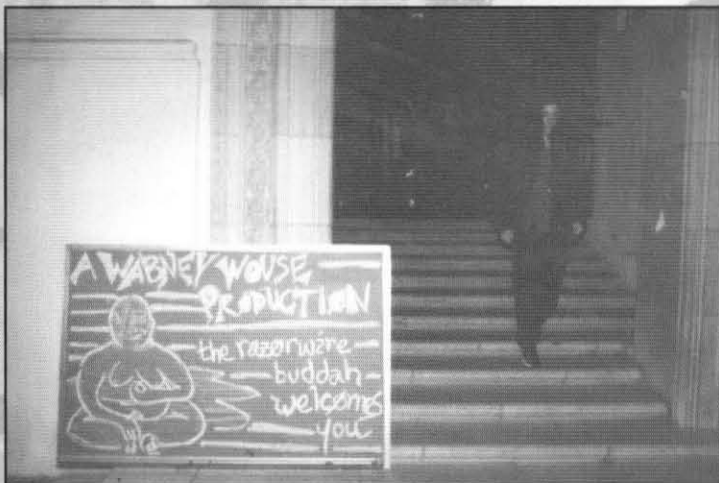 A WABNEY WOUSE
PRODUCTION
the razorwire
buddah
welcomes
you